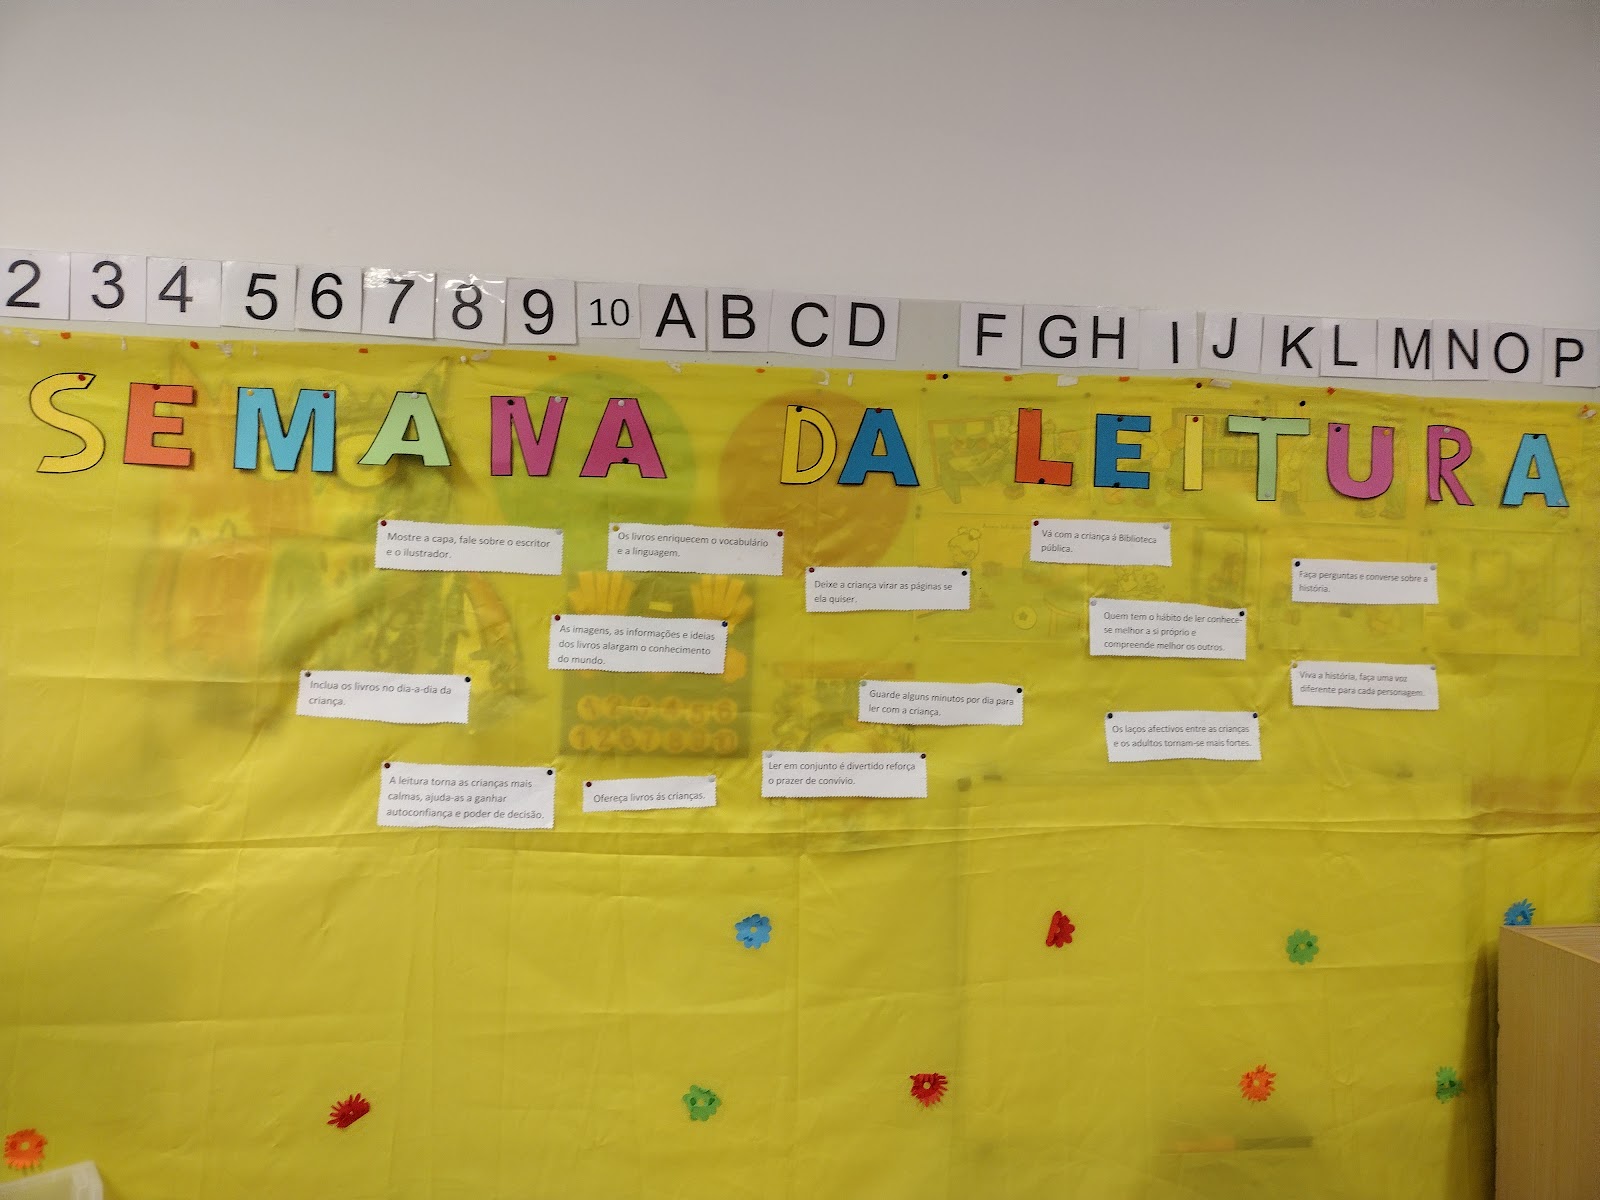 2 3 4 5 6 7 8 9 10 A B C D F G H I J K L M N O P
SEMANA DA LEITURA
Mostre a capa, fale sobre o escritor
e o ilustrador.
Os livros enriquecem o vocabulário
e a linguagem.
Deixe a criança virar as páginas se
ela quiser.
Vá com a criança á Biblioteca
pública.
Faça perguntas e converse sobre a
história.
As imagens, as informações e ideias
dos livros alargam o conhecimento
do mundo.
Quem tem o hábito de ler conhece-
se melhor a si próprio e
compreende melhor os outros.
Inclua os livros no dia-a-dia da
criança.
Guarde alguns minutos por dia para
ler com a criança.
Viva a história, faça uma voz
diferente para cada personagem.
Os laços afectivos entre as crianças
e os adultos tornam-se mais fortes.
A leitura torna as crianças mais
calmas, ajuda-as a ganhar
autoconfiança e poder de decisão.
Ofereça livros ás crianças.
Ler em conjunto é divertido reforça
o prazer de convívio.